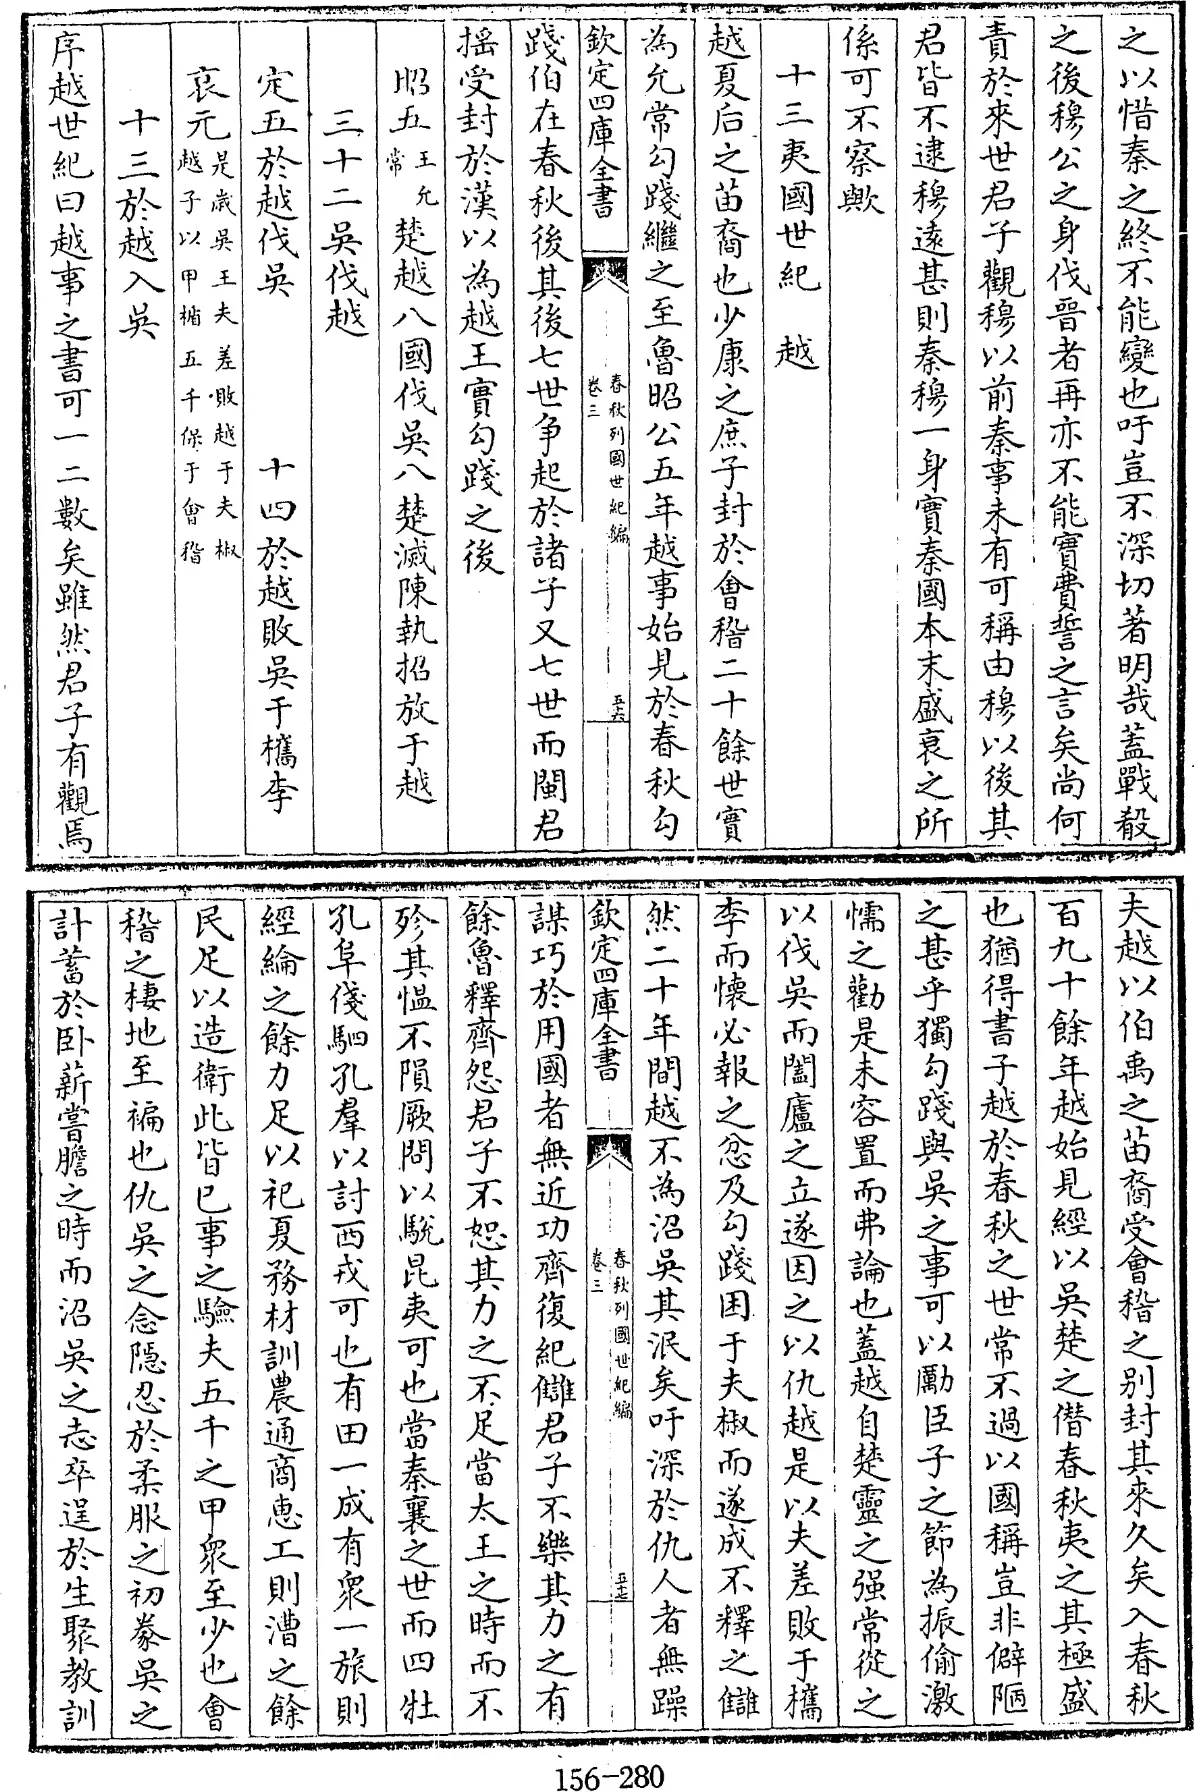 之以惜秦之終不能變也吁豈不深切著明哉蓋戰殽
之後穆公之身伐晉者再亦不能實費誓之言矣尚何
責於來世君子觀穆以前秦事未有可稱由穆以後其
君皆不逮穆遠甚則秦穆一身實秦國本末盛衰之所
係可不察歟
十三夷國世紀　越
越夏后之苗裔也少康之庶子封於會稽二十餘世實
為允常勾踐繼之至魯昭公五年越事始見於春秋勾
欽定四庫全書
春秋列國世紀編
卷三
五十六
踐伯在春秋後其後七世爭起於諸子又七世而閩君
揺受封於漢以為越王實勾踐之後
昭五王允常　楚越八國伐吳八楚滅陳執招放于越
三十二吳伐越
定五於越伐吳　十四於越敗吳于檇李
哀元是歲吳王夫差敗越于夫椒越子以甲楯五千保于會稽
十三於越入吳
序越世紀曰越事之書可一二數矣雖然君子有觀焉
夫越以伯禹之苗裔受會稽之別封其來久矣入春秋
百九十餘年越始見經以吳楚之僭春秋夷之其極盛
也猶得書子越於春秋之世常不過以國稱豈非僻陋
之甚乎獨勾踐與吳之事可以勵臣子之節為振偷激
懦之勸是未容置而弗論也蓋越自楚靈之强常從之
以伐吳而闔廬之立遂因之以仇越是以夫差敗于檇
李而懷必報之忿及勾踐困于夫椒而遂成不釋之讎
然二十年間越不為沼吳其泯矣吁深於仇人者無躁
欽定四庫全書
春秋列國世紀編
卷三
五十七
謀巧於用國者無近功齊復紀讎君子不樂其力之有
餘魯釋齊怨君子不恕其力之不足當太王之時而不
殄其愠不隕厥問以駾昆夷可也當秦襄之世而四牡
孔阜俴駟孔羣以討西戎可也有田一成有衆一旅則
經綸之餘力足以祀夏務材訓農通商惠工則漕之餘
民足以造衛此皆已事之驗夫五千之甲衆至少也會
稽之棲地至褊也仇吳之念隱忍於柔服之初豢吳之
計蓄於卧薪嘗膽之時而沼吳之志卒逞於生聚教訓
156-280